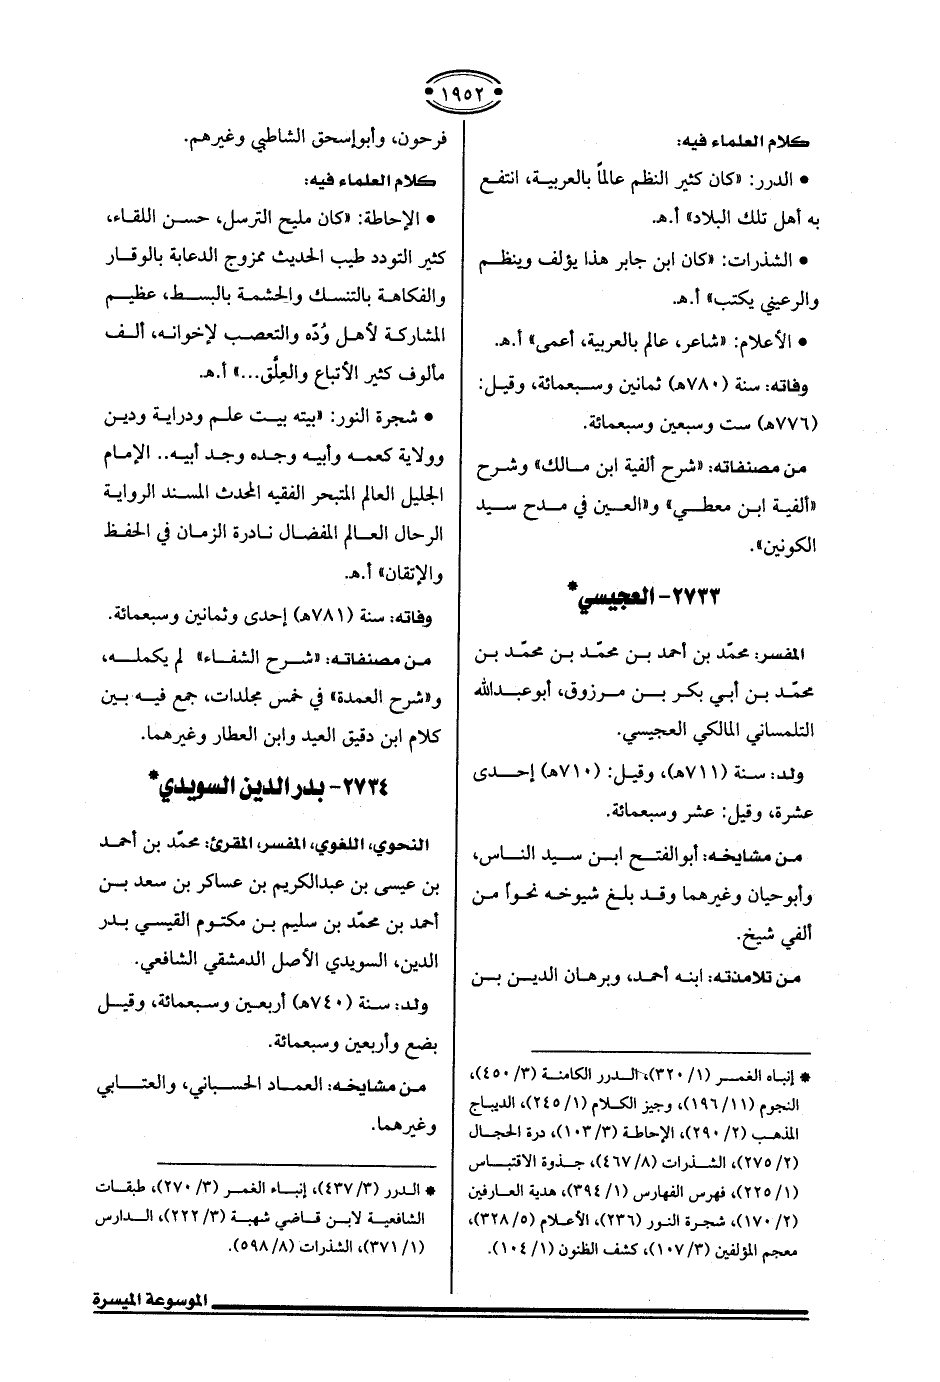 ١٩٥٢
كلام العلماء فيه:
• الدرر: «كان كثير النظم عالماً بالعربية، انتفع
به أهل تلك البلاد» أ.هـ.
• الشذرات: «كان ابن جابر هذا يؤلف وينظم
والرعيني يكتب» أ.هـ.
• الأعلام: «شاعر، عالم بالعربية، أعمى» أ.هـ.
وفاته: سنة (٧٨٠هـ) ثمانين وسبعمائة، وقيل:
(٧٧٦هـ) ست وسبعين وسبعمائة.
من مصنفاته: «شرح ألفية ابن مالك» وشرح
«ألفية ابن معطي» و«العين في مدح سيد
الكونين».
٢٧٣٣- العجيسي*
المفسر: محمّد بن أحمد بن محمّد بن محمّد بن
محمّد بن أبي بكر بن مرزوق، أبوعبدالله
التلمساني المالكي العجيسي.
ولد: سنة (٧١١هـ)، وقيل: (٧١٠هـ) إحدى
عشرة، وقيل: عشر وسبعمائة.
من مشايخه: أبوالفتح ابن سيد الناس،
وأبوحيان وغيرهما وقد بلغ شيوخه نحواً من
ألفي شيخ.
من تلامذته: ابنه أحمد، وبرهان الدين بن
* إنباه الغمر (١/ ٣٢٠)، الدرر الكامنة (٣/ ٤٥٠)،
النجوم (١١/ ١٩٦)، وجيز الكلام (١/ ٢٤٥)، الديباج
المذهب (٢/ ٢٩٠)، الإحاطة (٣/ ١٠٣)، درة الحجال
(٢/ ٢٧٥)، الشذرات (٨/ ٤٦٧)، جذوة الاقتباس
(١/ ٢٢٥)، فهرس الفهارس (١/ ٣٩٤)، هدية العارفين
(٢/ ١٧٠)، شجرة النور (٢٣٦)، الأعلام (٥/ ٣٢٨)،
معجم المؤلفين (٣/ ١٠٧)، كشف الظنون (١/ ١٠٤).
فرحون، وأبوإسحق الشاطبي وغيرهم.
كلام العلماء فيه:
• الإحاطة: «كان مليح الترسل، حسن اللقاء،
كثير التودد طيب الحديث ممزوج الدعابة بالوقار
والفكاهة بالتنسك والحشمة بالبسط، عظيم
المشاركة لأهل وُدّه والتعصب لإخوانه، ألف
مألوف كثير الأتباع والعِلَّق...» أ.هـ.
• شجرة النور: «بيته بيت علم ودراية ودين
وولاية كعمه وأبيه وجده وجد أبيه.. الإمام
الجليل العالم المتبحر الفقيه المحدث المسند الرواية
الرحال العالم المفضال نادرة الزمان في الحفظ
والإتقان» أ.هـ.
وفاته: سنة (٧٨١هـ) إحدى وثمانين وسبعمائة.
من مصنفاته: «شرح الشفاء» لم يكمله،
و«شرح العمدة» في خمس مجلدات، جمع فيه بين
كلام ابن دقيق العيد وابن العطار وغيرهما.
٢٧٣٤- بدر الدين السويدي*
النحوي، اللغوي، المفسر، المقرئ: محمّد بن أحمد
بن عيسى بن عبدالكريم بن عساكر بن سعد بن
أحمد بن محمّد بن سليم بن مكتوم القيسي بدر
الدين، السويدي الأصل الدمشقي الشافعي.
ولد: سنة (٧٤٠هـ) أربعين وسبعمائة، وقيل
بضع وأربعين وسبعمائة.
من مشايخه: العماد الحسباني، والعتابي
وغيرهما.
* الدرر (٣/ ٤٣٧)، إنباء الغمر (٣/ ٢٧٠)، طبقات
الشافعية لابن قاضي شهبة (٣/ ٢٢٢)، الدارس
(١/ ٣٧١)، الشذرات (٨/ ٥٩٨).
الموسوعة الميسرة